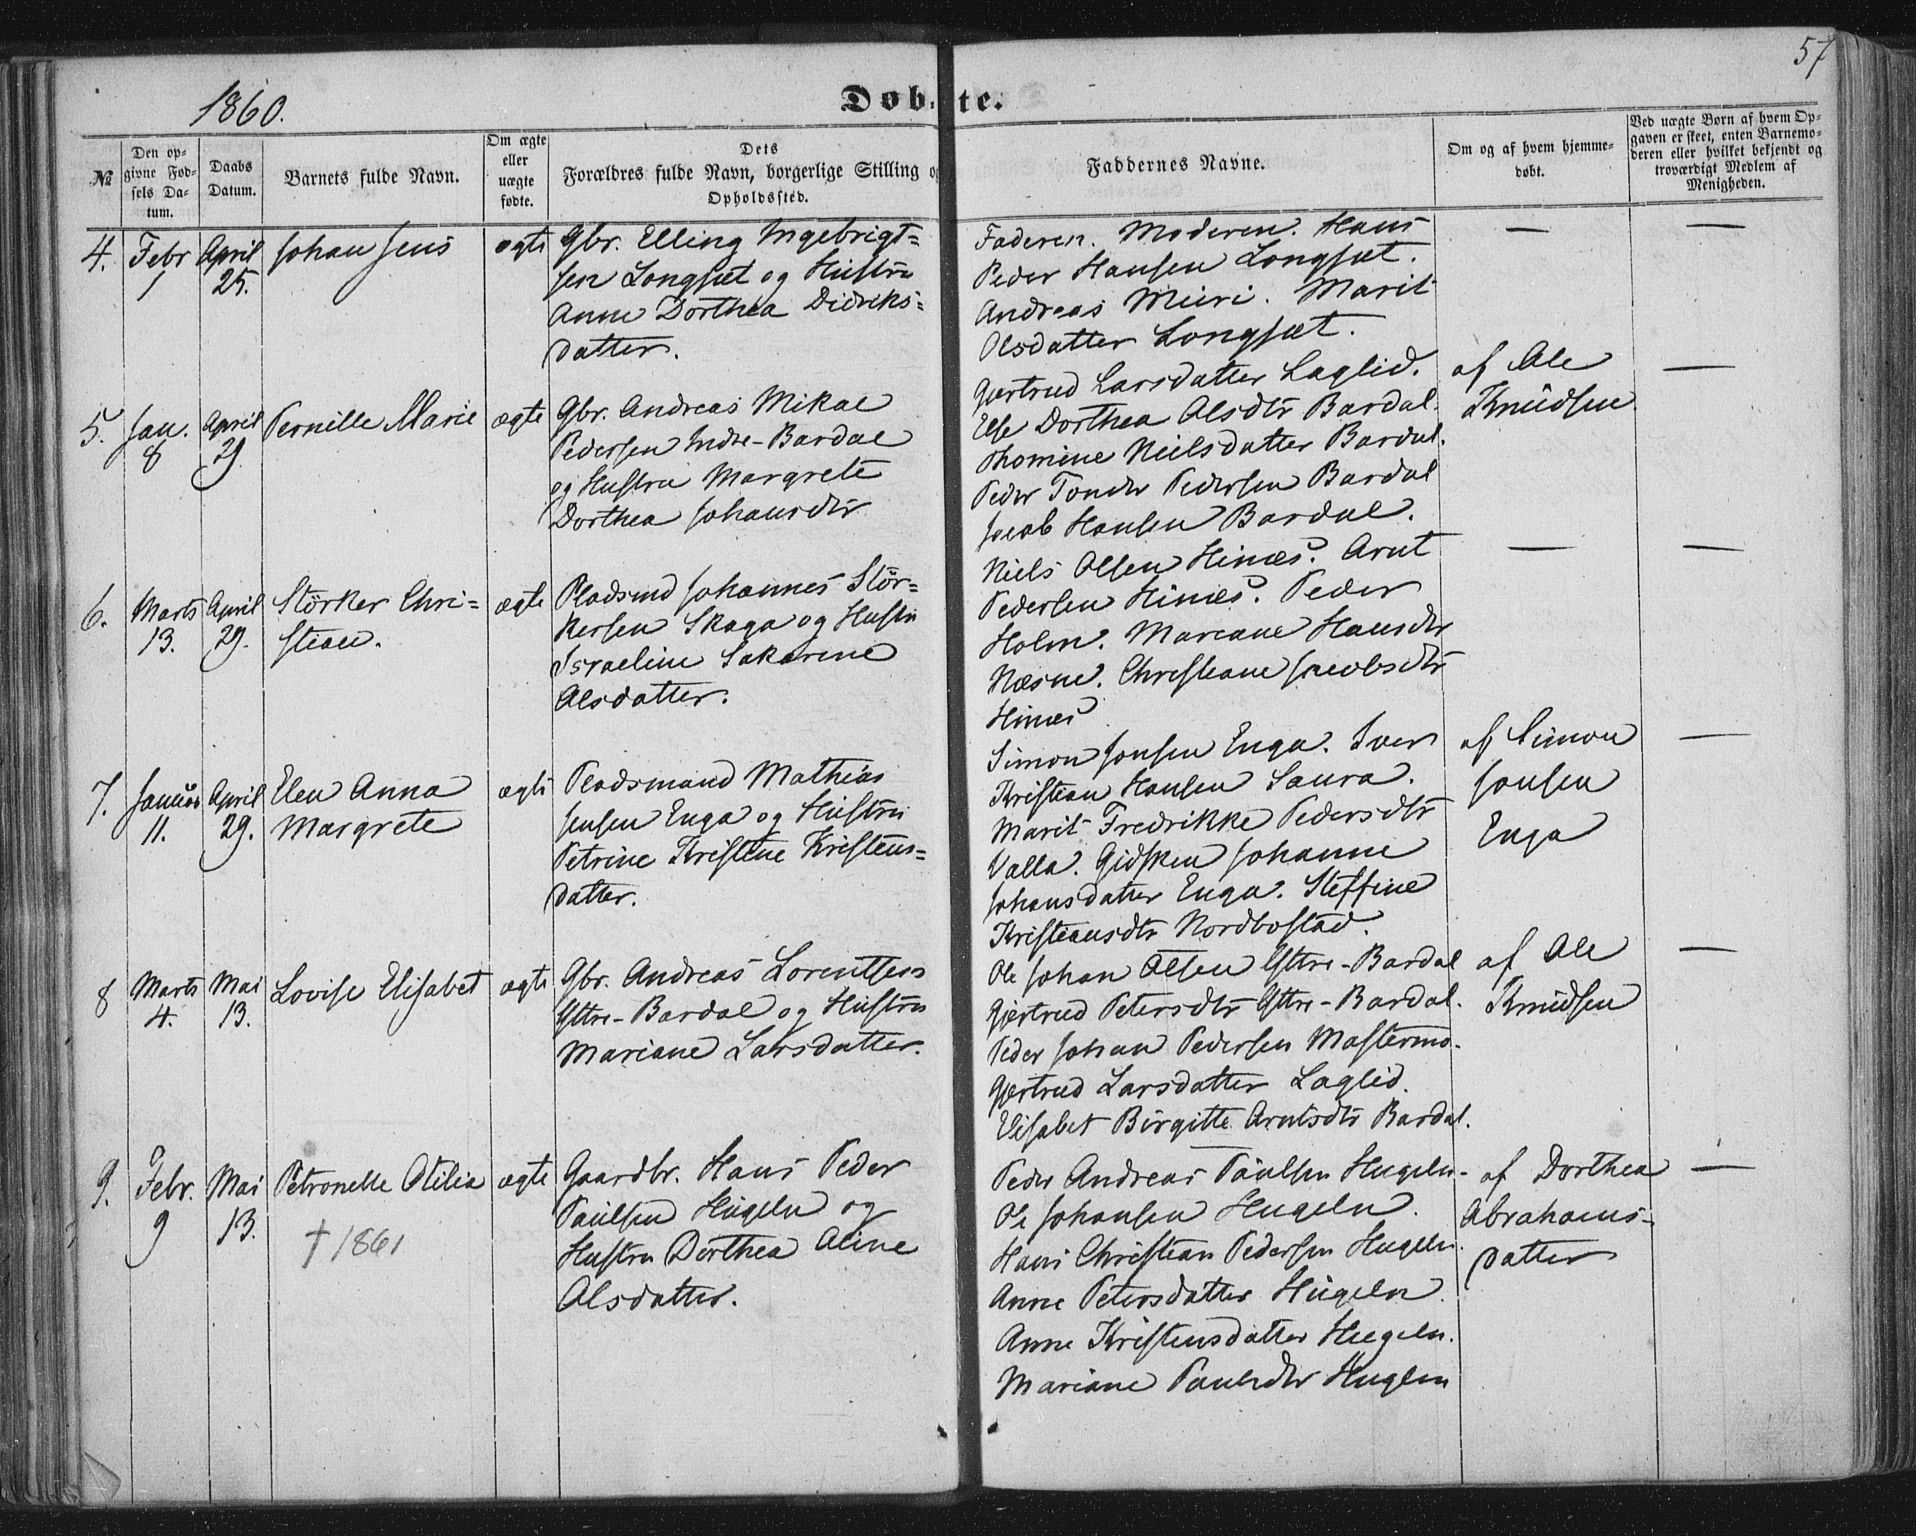 57
1860.
Døbte.
№
Den op-
givne Fød-
sels Da-
tum.
Daabs
Datum.
Barnets fulde Navn.
Om ægte
eller
uægte
fødte.
Dets
Forældres fulde Navn, borgerlige Stilling og
Opholdssted.
Faddernes Navne.
Om og af hvem hjemme-
døbt.
Ved uægte Børn af hvem Op-
gaven er skeet, enten Barnemo-
deren eller hvilket bekjendt og
troværdigt Medlem af
Menigheden.
4.
Febr
1
April
25.
Johan Jens
ægte
Gbr. Elling Ingebrigt-
sen Longset og Hustru
Anne Dorthea Didriks-
datter.
Faderen. Moderen. Hans
Peder Hansen Longset.
Andreas Meiri. Marit
Olsdatter Longset.
—
—
5.
Jan.
8
April
29
Pernille Marie
ægte
Gbr. Andreas Mikal
Pedersen Indre-Bardal
og Hustru Margrete
Dorthea Johansdtr
Gjertrud Larsdatter Laglid.
Else Dorthea Olsdtr Bardal.
Thomine Nielsdatter Bardal.
Peder Tønder Pedersen Bardal
Jacob Hansen Bardal.
af Ole
Knudsen
—
6.
Marts
13.
April
29.
Størker Chri-
stian.
ægte
Pladsmd Johannes Stør-
kersen Skaga og Hustru
Israeline Sakarine
Olsdatter.
Niels Olsen Hinæs. Arnt
Pedersen Hinæs. Peder
Holm. Mariane Hansdtr
Næsne. Christiane Jacobsdtr
Hinæs
—
—
7.
Januar
11.
April
29.
Elen Anna
Margrete
ægte
Pladsmand Mathias
Jensen Enga og Hustru
Petrine Kristine Kristens-
datter.
Simon Jonsen Enga. Iver
Kristian Hansen Saura.
Marit Fredrikke Pedersdtr
Valla. Gidsken Johanne
Johansdatter Enga. Steffine
Kristiansdtr Nordbostad.
af Simon
Jonsen
Enga
—
8
Marts
4.
Mai
13.
Lovise Elisabet
ægte
Gbr. Andreas Lorentsen
Yttre-Bardal og Hustru
Mariane Larsdatter.
Ole Johan Olsen Yttre-Bardal
Gjertrud Petersdtr Yttre-Bardal.
Peder Johan Pedersen Mastermo.
Gjertrud Larsdatter Laglid.
Elisabet Birgitte Arntsdtr Bardal.
af Ole
Knudsen
—
9.
Febr.
9
Mai
13.
Petronelle Otilia
† 1861
ægte
Gaardbr. Hans Peder
Paulsen Hugeln og
Hustru Dorthea Aline
Olsdatter.
Peder Andreas Paulsen Hugeln.
Ole Johansen Hugeln.
Hans Christian Pedersen Hugeln.
Anne Petersdatter Hugeln.
Anne Kristensdatter Hugeln.
Mariane Paulsdtr Huglen
af Dorthea
Abrahams-
datter
—